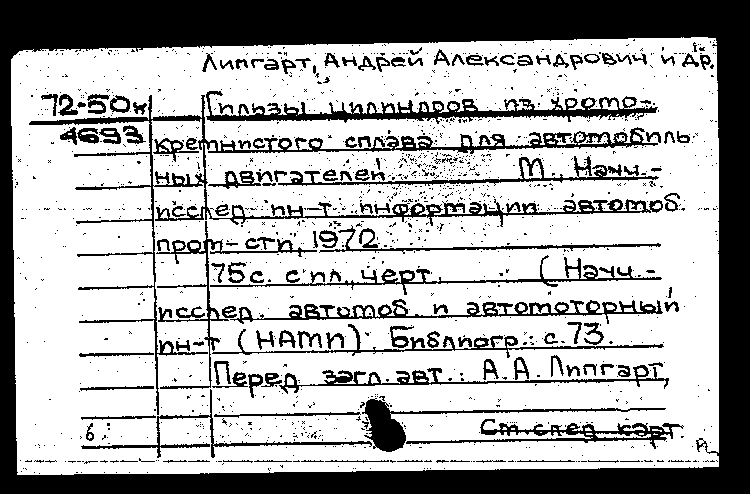 Липгарт, Андрей Александрович и др.
72-50к Гильзы цилиндров из хромо-
4693 кремнистого сплава для автомобиль
ных двигателей. М., Научн.-
исслед. ин-т информации автомоб.
пром-сти, 1972.
75 с. с ил., черт. (Научн.-
исслед. автомоб. и автомоторный
ин-т (НАМИ). Библиогр.: с. 73.
Перед загл. авт.: А.А. Липгарт,
6 См. след. карт.